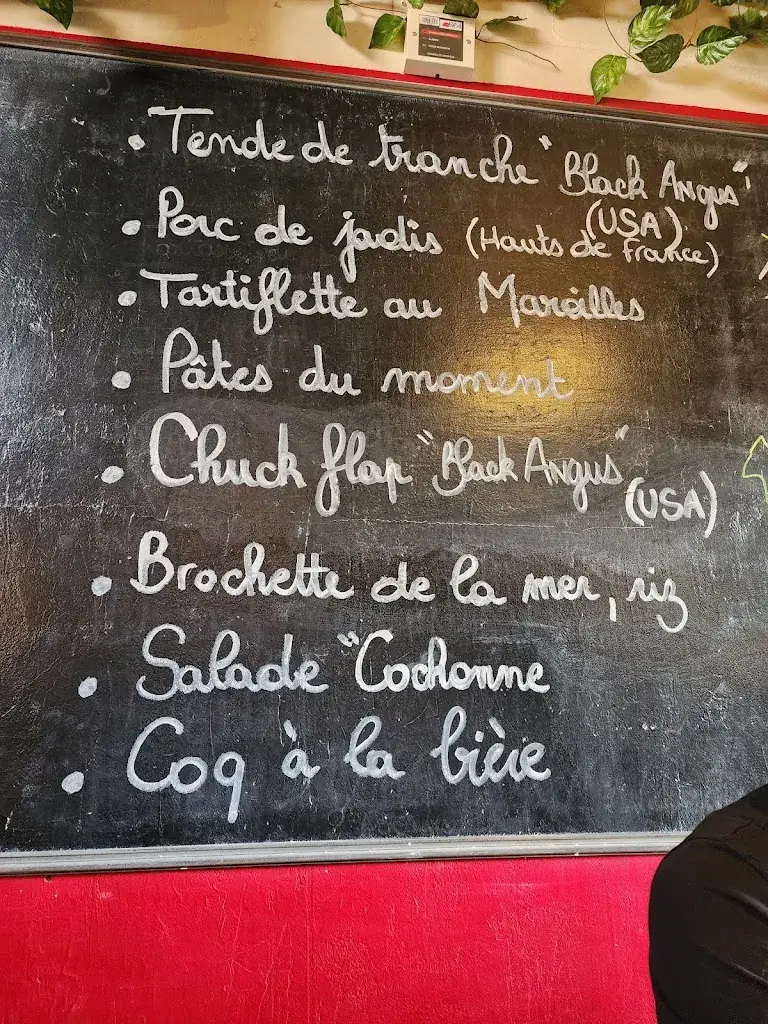 • Tende de tranche "Black Angus"
(USA)
• Porc de jadis (Hauts de France)
• Tartiflette au Maroilles
• Pâtes du moment
• Chuck flap "Black Angus"
(USA)
• Brochette de la mer, riz
• Salade "Cochonne
• Coq à la bière